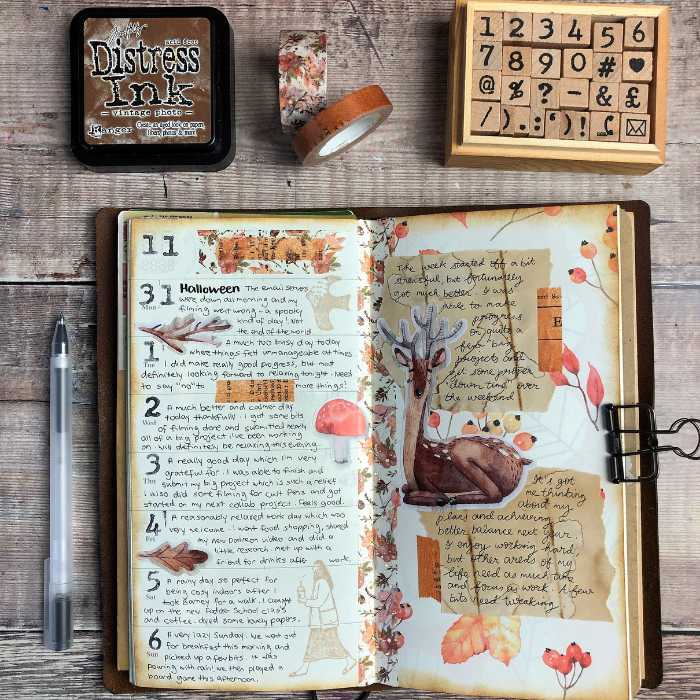 Distress
Ink
vintage photo
Ranger
1 2 3 4 5 6
7 8 9 0 # ♥
@ % ? - & £
/ . : ' ! (
11
31 Halloween The email servers
Mon were down all morning and my
filming went wrong - a spooky
kind of day! Not
the end of the world
1 A much too busy day today
Tue where things felt unmanageable at times
I did make really good progress, but most
definitely looking forward to relaxing tonight. Need
to say "no" to more things!
2 A much better and calmer day
Wed today thankfully. I got some bits
of filming done and submitted nearly
all of a big project i've been working
on. Will definitely be relaxing this evening
3 A really good day which I'm very
Thu grateful for. I was able to finish and
submit my big project which is such a relief
I also did some filming for Cult Pens and got
started on my next collab project. Feels good.
4 A reasonably relaxed work day which was
Fri very welcome. I went food shopping, shared
my new Patreon video and did a
little research. Met up with a
friend for drinks after work.
5 A rainy day so perfect for
Sat being cosy indoors after I
took Barney for a walk. I caught
up on the new Fodder School class
and coffee dyed some lovely papers.
6 A very lazy Sunday. We went out
Sun for breakfast this morning and
picked up a few bits. It was
pouring with rain! We then played a
board game this afternoon.
The week started off a bit
stressful, but fortunately
got much better. I was
able to make
progress
on quite a
few big
projects and
get some proper
"down time" over
the weekend
E
It's got
me thinking
about my
plans and achieving a
better balance next year
I enjoy working hard
but other areas of my
life need as much time
and focus as work. A few
bits need tweaking